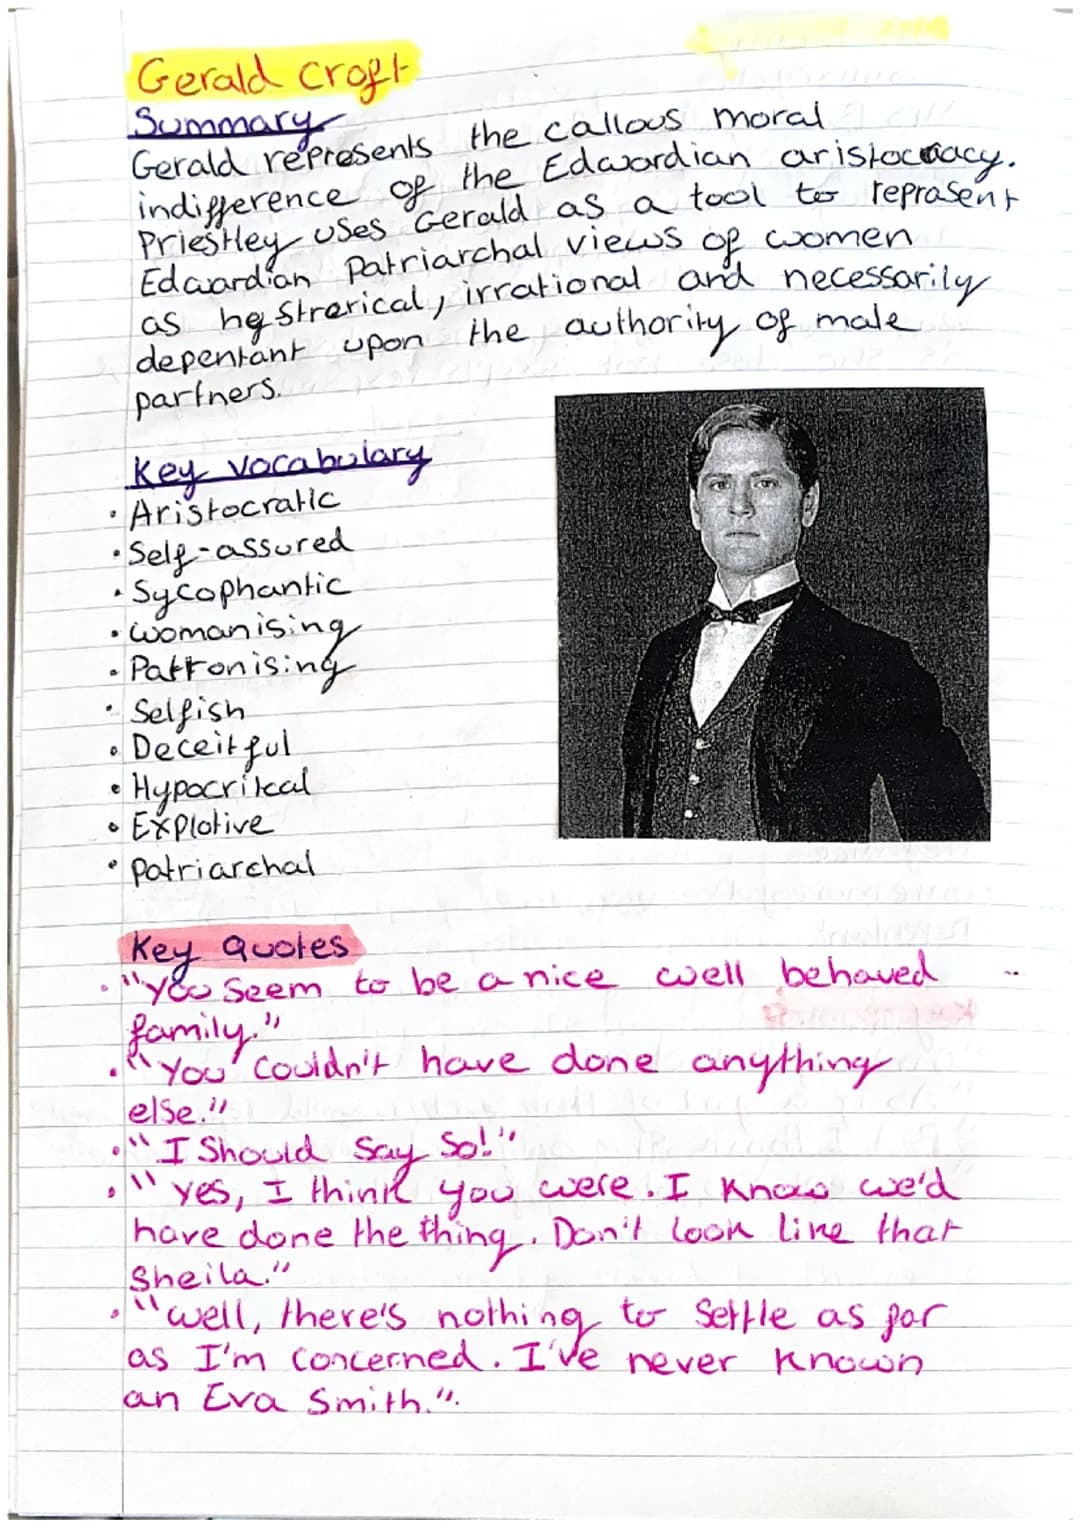 Gerald Croft
Summary
Gerald represents the callous moral
indifference of the Edwardian aristocracy.
Priestley uses Gerald as a tool to reprasent
Edwardian Patriarchal views of women
as hystrerical, irrational and necessarily
depentant upon the authority of male
partners.
Key vocabulary
• Aristocratic
• Self-assured
• Sycophantic
• Womanising
• Patronising
• Selfish
• Deceitful
• Hypocritcal
• Explotive
• Patriarchal
Key quotes
• "You seem to be a nice well behaved
family."
• "You couldn't have done anything
else."
• "I should say so!"
• "Yes, I think you were. I know we'd
have done the thing. Don't look like that
Sheila."
• "Well, there's nothing to settle as far
as I'm concerned. I've never known
an Eva Smith."